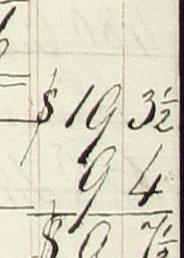 $19 3½
9 4
$9 7½